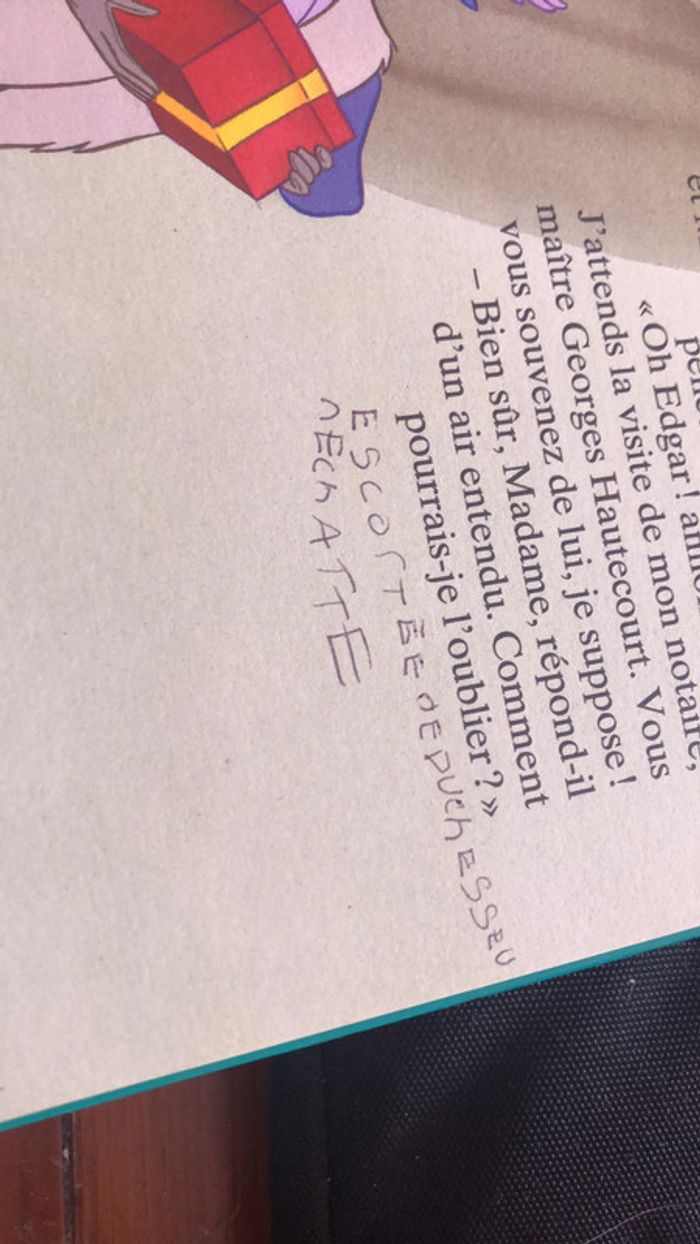 « Oh Edgar !
J'attends la visite de mon notaire,
maître Georges Hautecourt. Vous
vous souvenez de lui, je suppose !
– Bien sûr, Madame, répond-il
d'un air entendu. Comment
pourrais-je l'oublier ? »
ESCORTÉE dE DUChESSEU
nEChATTE